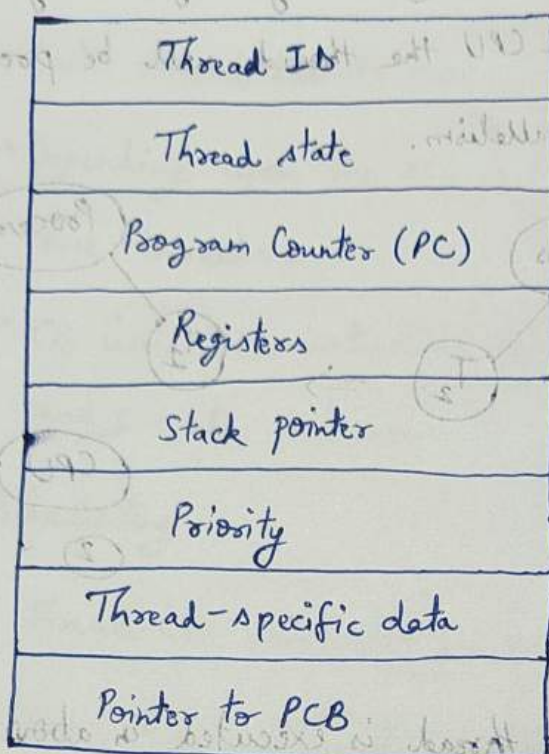 Thread ID
Thread state
Program Counter (PC)
Registers
Stack pointer
Priority
Thread-specific data
Pointer to PCB